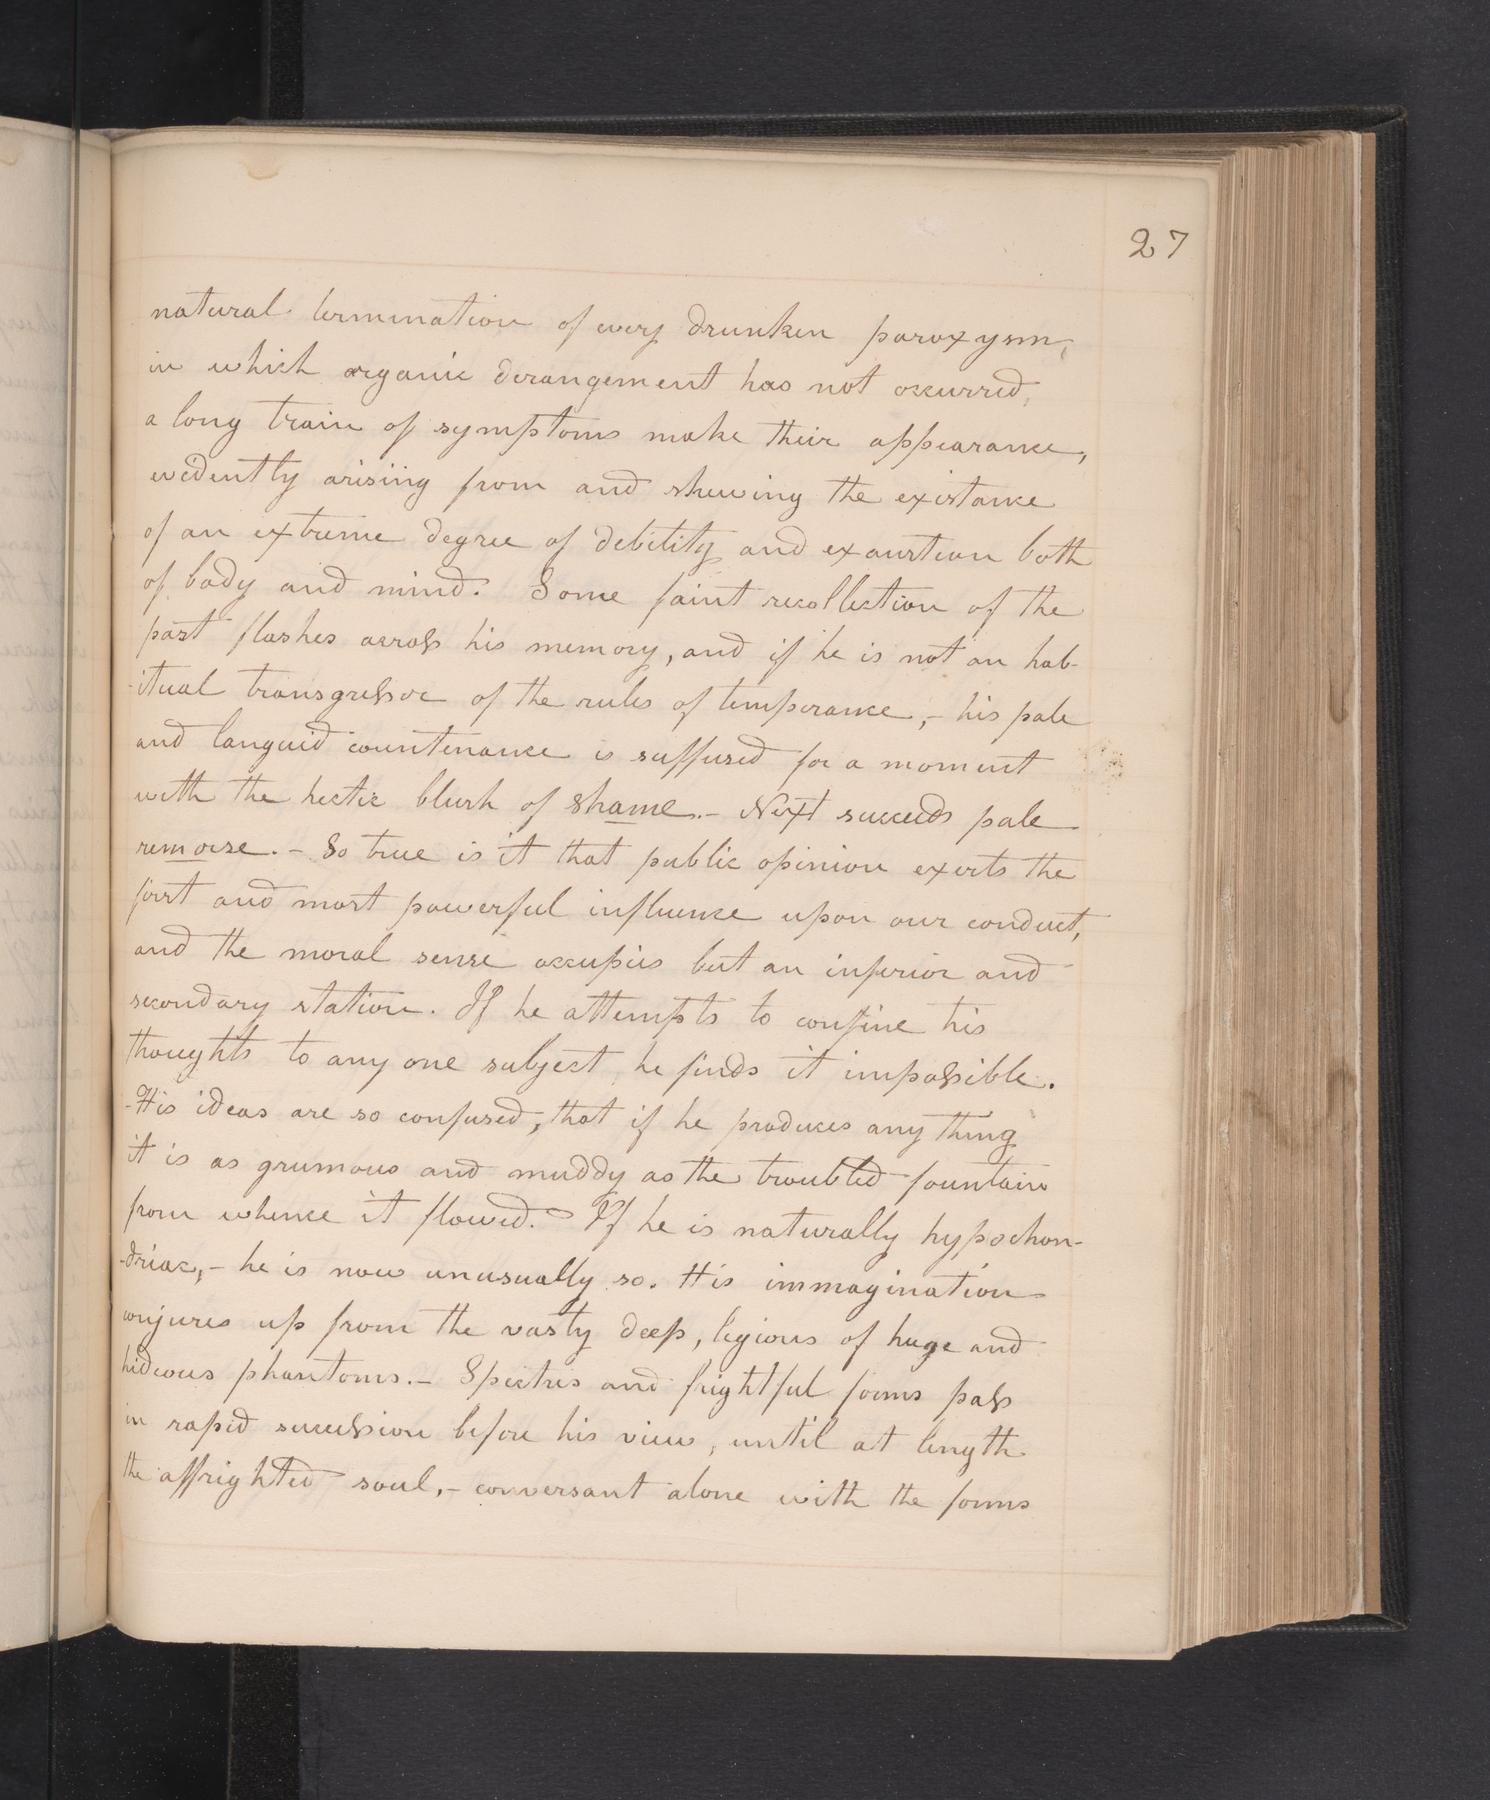 27
natural termination of every drunken paroxysm,
in which organic derangement has not occurred,
a long train of symptoms make their appearance,
evidently arising from and shewing the existance
of an extreme degree of debility and exaustion both
of body and mind. Some faint recollection of the
past flashes across his memory, and if he is not an hab-
-itual transgressor of the rules of temperance, - his pale
and languid countenance is suffused for a moment
with the hectic blush of shame. - Next succeeds pale
remorse. - So true is it that public opinion exerts the
first and most powerful influence upon our conduct,
and the moral sense occupies but an inferior and
secondary station. If he attempts to confine his
thoughts to any one subject, he finds it impossible.
His ideas are so confused, that if he produces any thing
it is as grumous and muddy as the troubled fountain
from whence it flowed. If he is naturally hypochon-
-driac, - he is now unusually so. His immagination
conjures up from the vasty deep, legions of huge and
hideous phantoms. - Spectres and frightful forms pass
in rapid succession before his view, until at length
the affrighted soul, - conversant alone with the forms